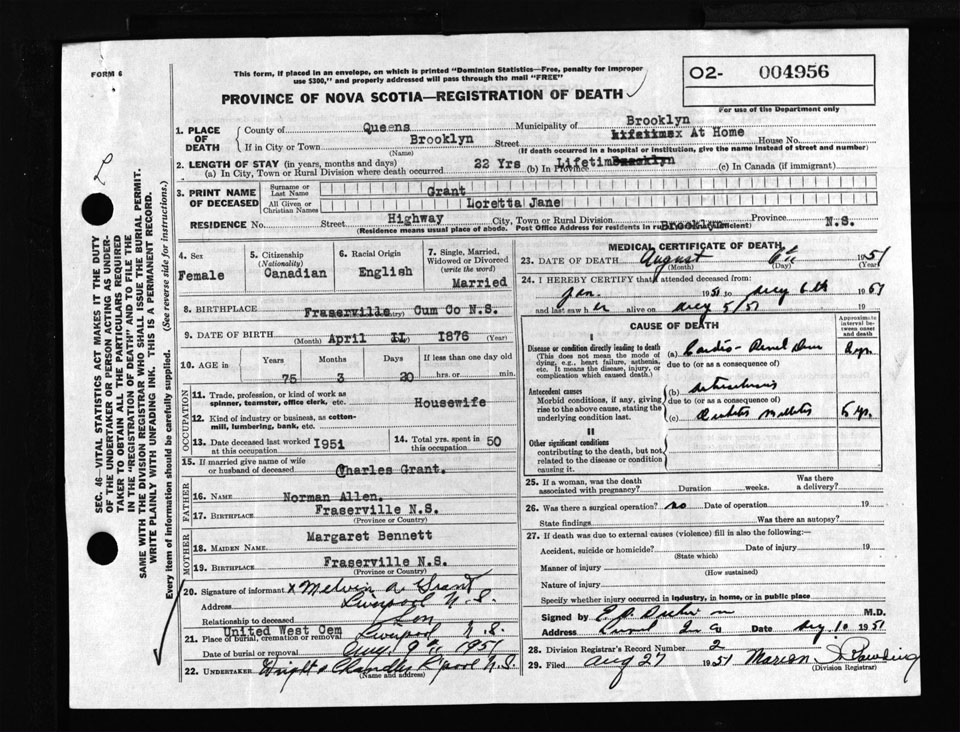 FORM 6
This form, if placed in an envelope, on which is printed "Dominion Statistics—Free, penalty for improper
use $300," and properly addressed will pass through the mail "FREE"
O2- 004956
For use of the Department only
PROVINCE OF NOVA SCOTIA—REGISTRATION OF DEATH
1. PLACE OF DEATH
County of Queens Municipality of Brooklyn
If in City or Town Brooklyn Street At Home House No.
(Name) (If death occurred in a hospital or institution, give the name instead of street and number)
2. LENGTH OF STAY (in years, months and days)
(a) In City, Town or Rural Division where death occurred 22 Yrs (b) In Province Lifetim (c) In Canada (if immigrant)
3. PRINT NAME OF DECEASED
Surname or Last Name Grant
All Given or Christian Names Loretta Jane
RESIDENCE No. Street Highway City, Town or Rural Division Brooklyn Province N.S.
(Residence means usual place of abode. Post Office Address for residents in rural
4. Sex Female
5. Citizenship (Nationality) Canadian
6. Racial Origin English
7. Single, Married, Widowed or Divorced (write the word) Married
8. BIRTHPLACE Fraserville Cum Co N.S.
9. DATE OF BIRTH (Month) April II (Day) 1876 (Year)
10. AGE in Years 75 Months 3 Days 20 If less than one day old hrs. or min.
OCCUPATION
11. Trade, profession, or kind of work as spinner, teamster, office clerk, etc. Housewife
12. Kind of industry or business, as cotton-mill, lumbering, bank, etc.
13. Date deceased last worked at this occupation I951
14. Total yrs. spent in this occupation 50
15. If married give name of wife or husband of deceased Charles Grant.
FATHER
16. NAME Norman Allen.
17. BIRTHPLACE Fraserville N.S.
(Province or Country)
MOTHER
18. MAIDEN NAME Margaret Bennett
19. BIRTHPLACE Fraserville N.S.
(Province or Country)
20. Signature of informant x Melvin A. Grant
Address Liverpool N.S.
Relationship to deceased Son
21. Place of burial, cremation or removal United West Cem Liverpool N.S.
Date of burial or removal Aug. 9th 1951
22. UNDERTAKER Wright & Chandler L'pool N.S.
(Name and address)
MEDICAL CERTIFICATE OF DEATH
23. DATE OF DEATH August 6th 1951
(Month) (Day) (Year)
24. I HEREBY CERTIFY that I attended deceased from:
Jan. 1951 to Aug 6th 1951
and last saw her alive on Aug 5/51
CAUSE OF DEATH
Approximate interval between onset and death
I
Disease or condition directly leading to death
(This does not mean the mode of dying, e.g., heart failure, asthenia, etc. It means the disease, injury, or complication which caused death.)
(a) Cardio-Renal Dis
due to (or as a consequence of)
Antecedent causes
Morbid conditions, if any, giving rise to the above cause, stating the underlying condition last.
(b)
due to (or as a consequence of)
(c) Diabetes Mellitus 5 yrs.
II
Other significant conditions
contributing to the death, but not related to the disease or condition causing it.
25. If a woman, was the death associated with pregnancy? Duration weeks. Was there a delivery?
26. Was there a surgical operation? no Date of operation 19
State findings Was there an autopsy?
27. If death was due to external causes (violence) fill in also the following:—
Accident, suicide or homicide? Date of injury 19
(State which)
Manner of injury
(How sustained)
Nature of injury
Specify whether injury occurred in industry, in home, or in public place
Signed by M.D.
Address Date Aug. 10 1951
28. Division Registrar's Record Number 2
29. Filed Aug 27 1951 Marion
(Division Registrar)
SEC. 46—VITAL STATISTICS ACT MAKES IT THE DUTY
OF THE UNDERTAKER OR PERSON ACTING AS UNDER-
TAKER TO OBTAIN ALL THE PARTICULARS REQUIRED
IN THE "REGISTRATION OF DEATH" AND TO FILE THE
SAME WITH THE DIVISION REGISTRAR WHO SHALL ISSUE THE BURIAL PERMIT.
WRITE PLAINLY WITH UNFADING INK. THIS IS A PERMANENT RECORD.
Every item of information should be carefully supplied. (See reverse side for instructions.)